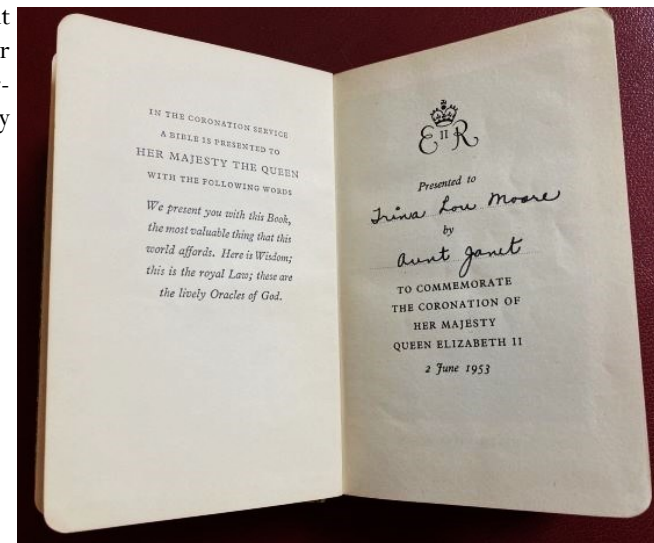 IN THE CORONATION SERVICE
A BIBLE IS PRESENTED TO
HER MAJESTY THE QUEEN
WITH THE FOLLOWING WORDS
We present you with this Book,
the most valuable thing that this
world affords. Here is Wisdom;
this is the royal Law; these are
the lively Oracles of God.
E II R
Presented to
Trina Lou Moore
by
Aunt Janet
TO COMMEMORATE
THE CORONATION OF
HER MAJESTY
QUEEN ELIZABETH II
2 June 1953